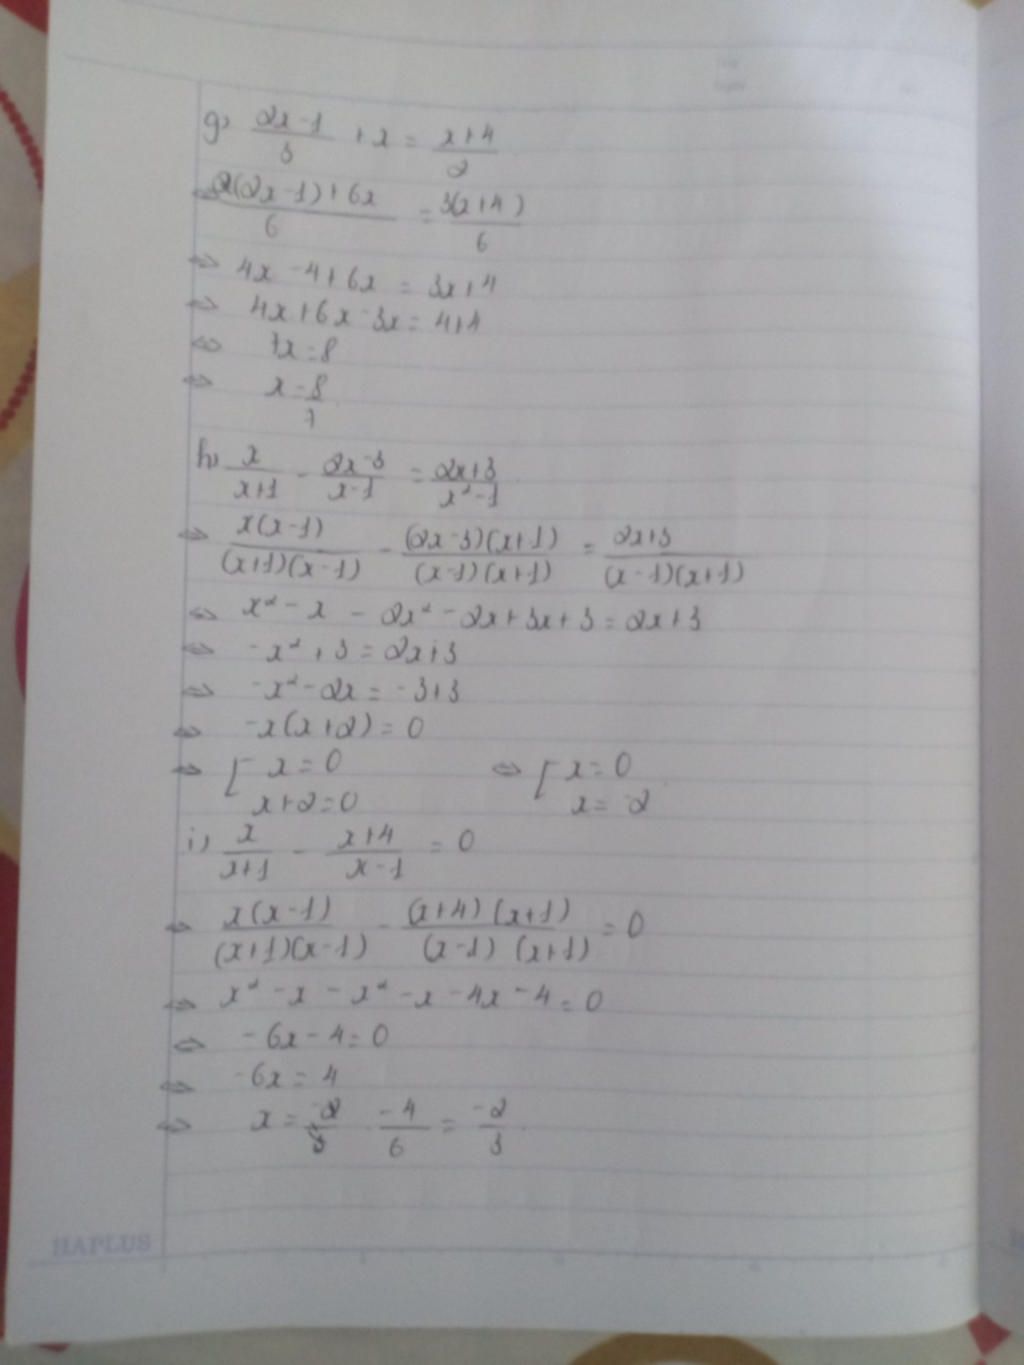 g) (2x-1)/3 + x = (x+4)/2
⇔ (2(2x-1)+6x)/6 = 3(x+4)/6
⇔ 4x - 4 + 6x = 3x + 4
⇔ 4x + 6x - 3x = 4 + 4
⇔ 7x = 8
⇔ x = 8/7
h) x/(x+1) - (2x-3)/(x-1) = (2x+3)/(x²-1)
⇔ x(x-1)/((x+1)(x-1)) - (2x-3)(x+1)/((x-1)(x+1)) = (2x+3)/((x-1)(x+1))
⇔ x² - x - 2x² - 2x + 3x + 3 = 2x + 3
⇔ -x² + 3 = 2x + 3
⇔ -x² - 2x = -3 + 3
⇔ -x(x+2) = 0
⇔ [ x = 0 ⇔ [ x = 0
x + 2 = 0 x = -2
i) x/(x+1) - (x+4)/(x-1) = 0
⇔ x(x-1)/((x+1)(x-1)) - (x+4)(x+1)/((x-1)(x+1)) = 0
⇔ x² - x - x² - x - 4x - 4 = 0
⇔ -6x - 4 = 0
⇔ -6x = 4
⇔ x = -4/6 = -2/3
HAPLUS